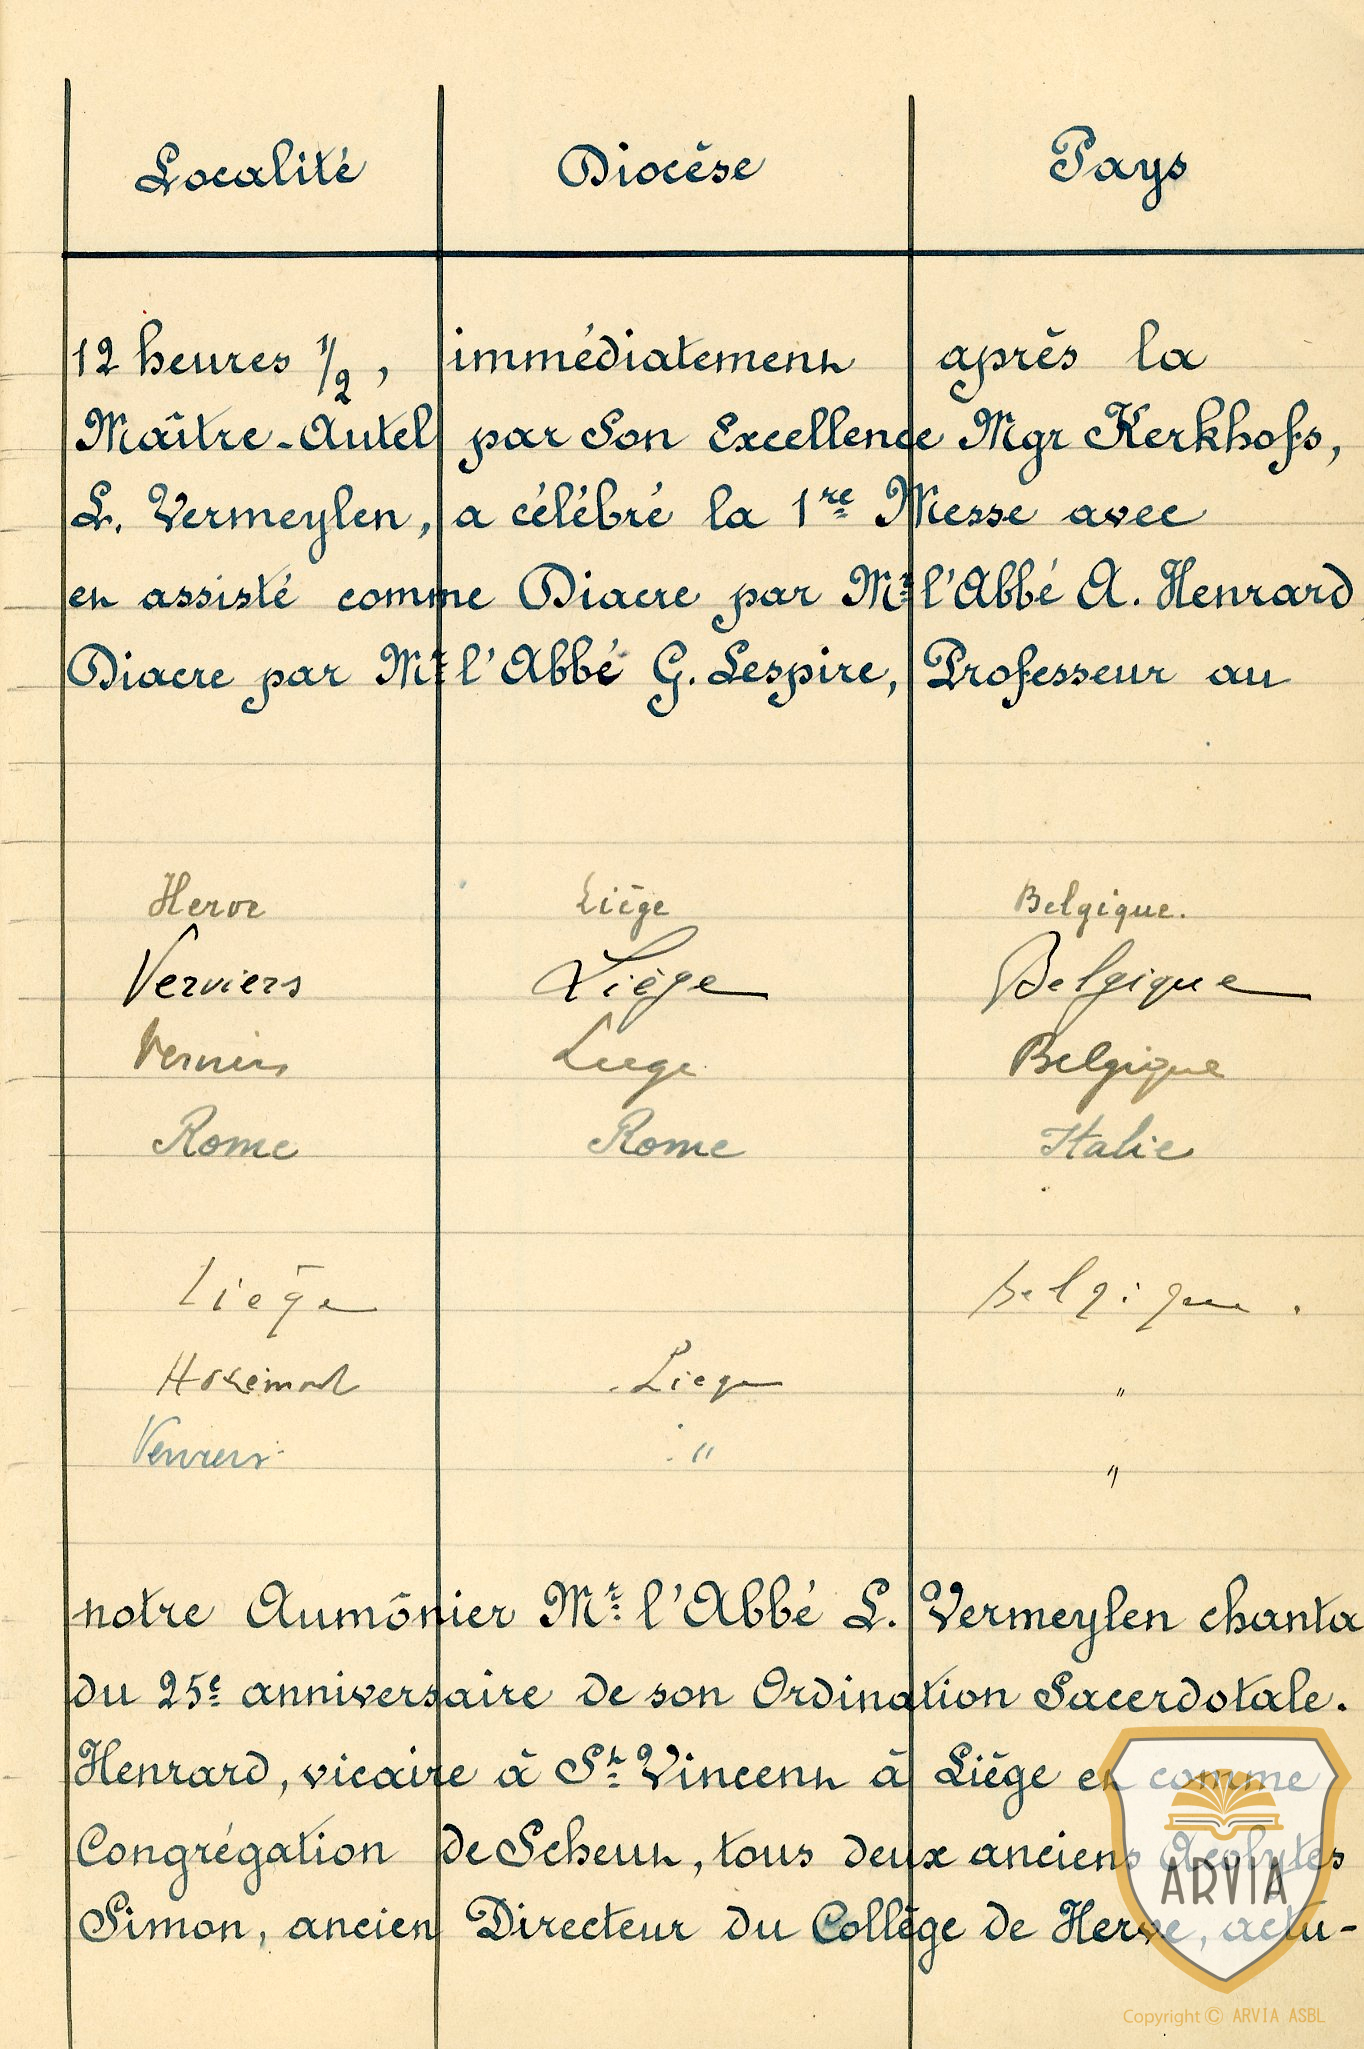 Localité Diocèse Pays
12 heures 1/2, immédiatement après la
Maître-Autel par Son Excellence Mgr Kerkhofs,
L. Vermeylen, a célébré la 1re Messe avec
et assisté comme Diacre par Mr l'Abbé A. Henrard,
Diacre par Mr l'Abbé G. Lespire, Professeur au
Herve Liège Belgique.
Verviers Liège Belgique
Verviers Liege Belgique
Rome Rome Italie
Liège Belgique.
Hozémont Liege "
Verviers " "
notre Aumônier Mr l'Abbé L. Vermeylen chanta
du 25e anniversaire de son Ordination Sacerdotale.
Henrard, vicaire à St Vincent à Liège et comme
Congrégation de Scheut, tous deux anciens Acolytes
Simon, ancien Directeur du Collège de Herve, actu-
ARVIA
Copyright © ARVIA ASBL